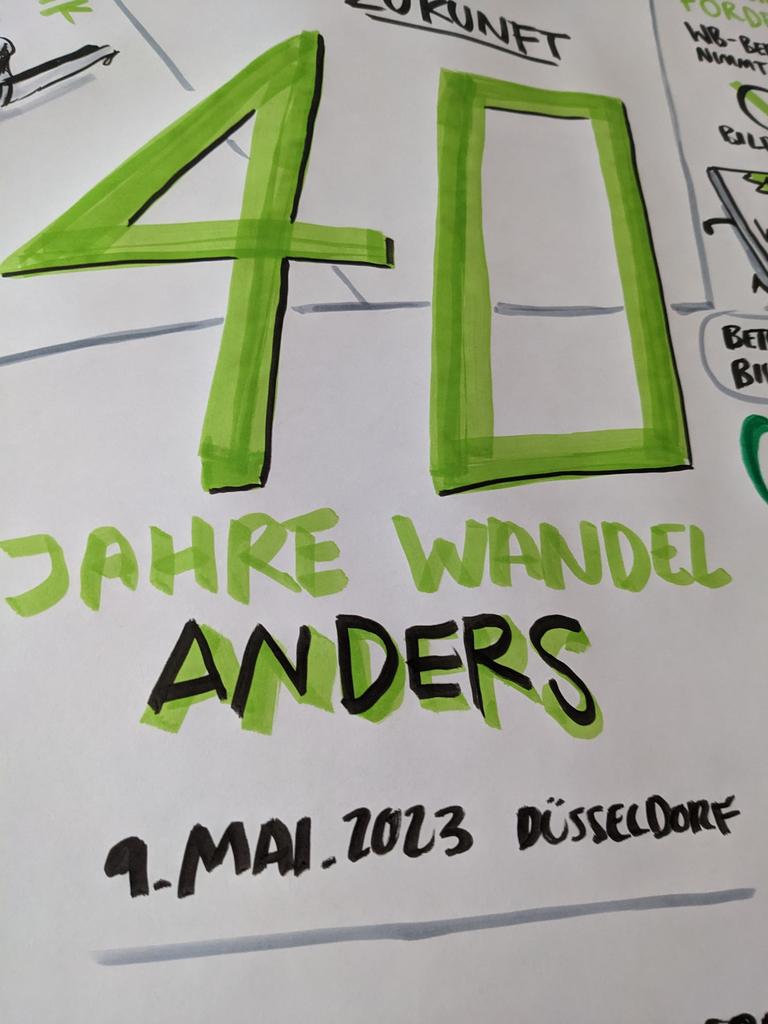 ZUKUNFT
WB-BE
NIMMT
40
JAHRE WANDEL
ANDERS
9. MAI. 2023 DÜSSELDORF